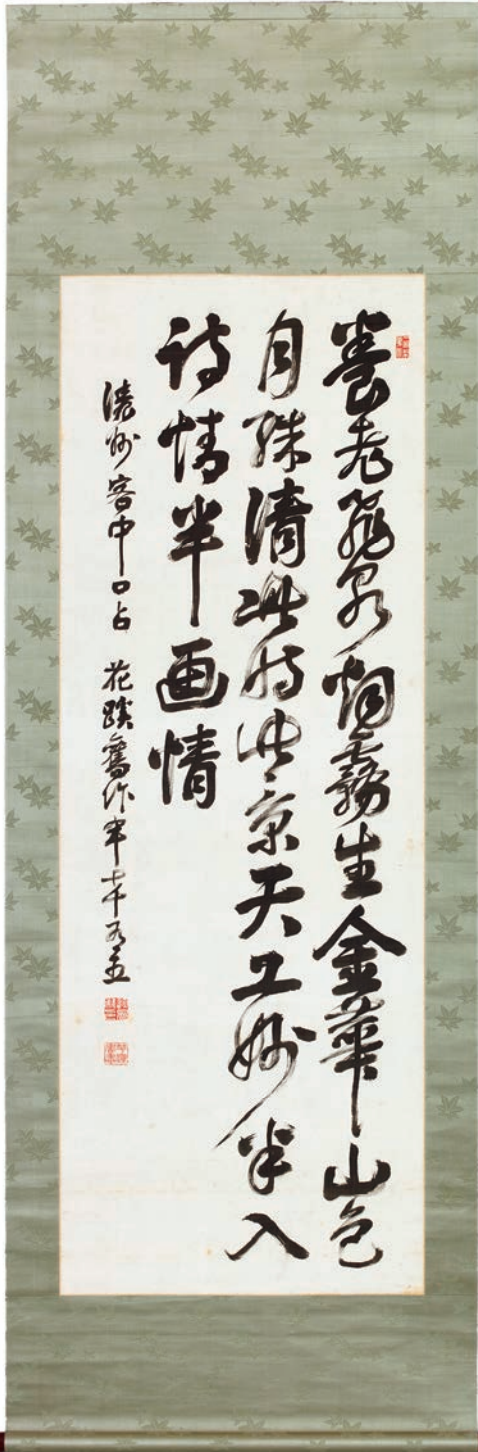 養老飛泉烟霧生金華山色
月殊清此時此景天工妙半入
詩情半画情
濃州客中口占 花蹊舊作年七十有五